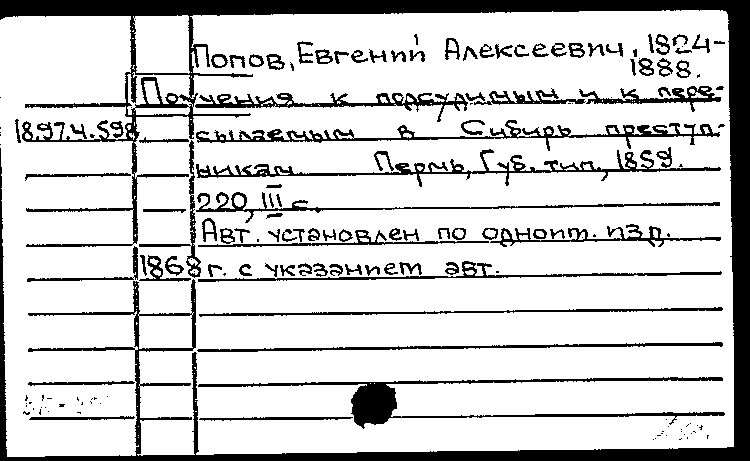 Попов, Евгений Алексеевич, 1824-
1888.
Поучения к подсудимым и к пере-
18.97.4.598. сылаемым в Сибирь преступ-
никам. Пермь, Губ. тип., 1859.
220, III с.
Авт. установлен по одноим. изд.
1868 г. с указанием авт.